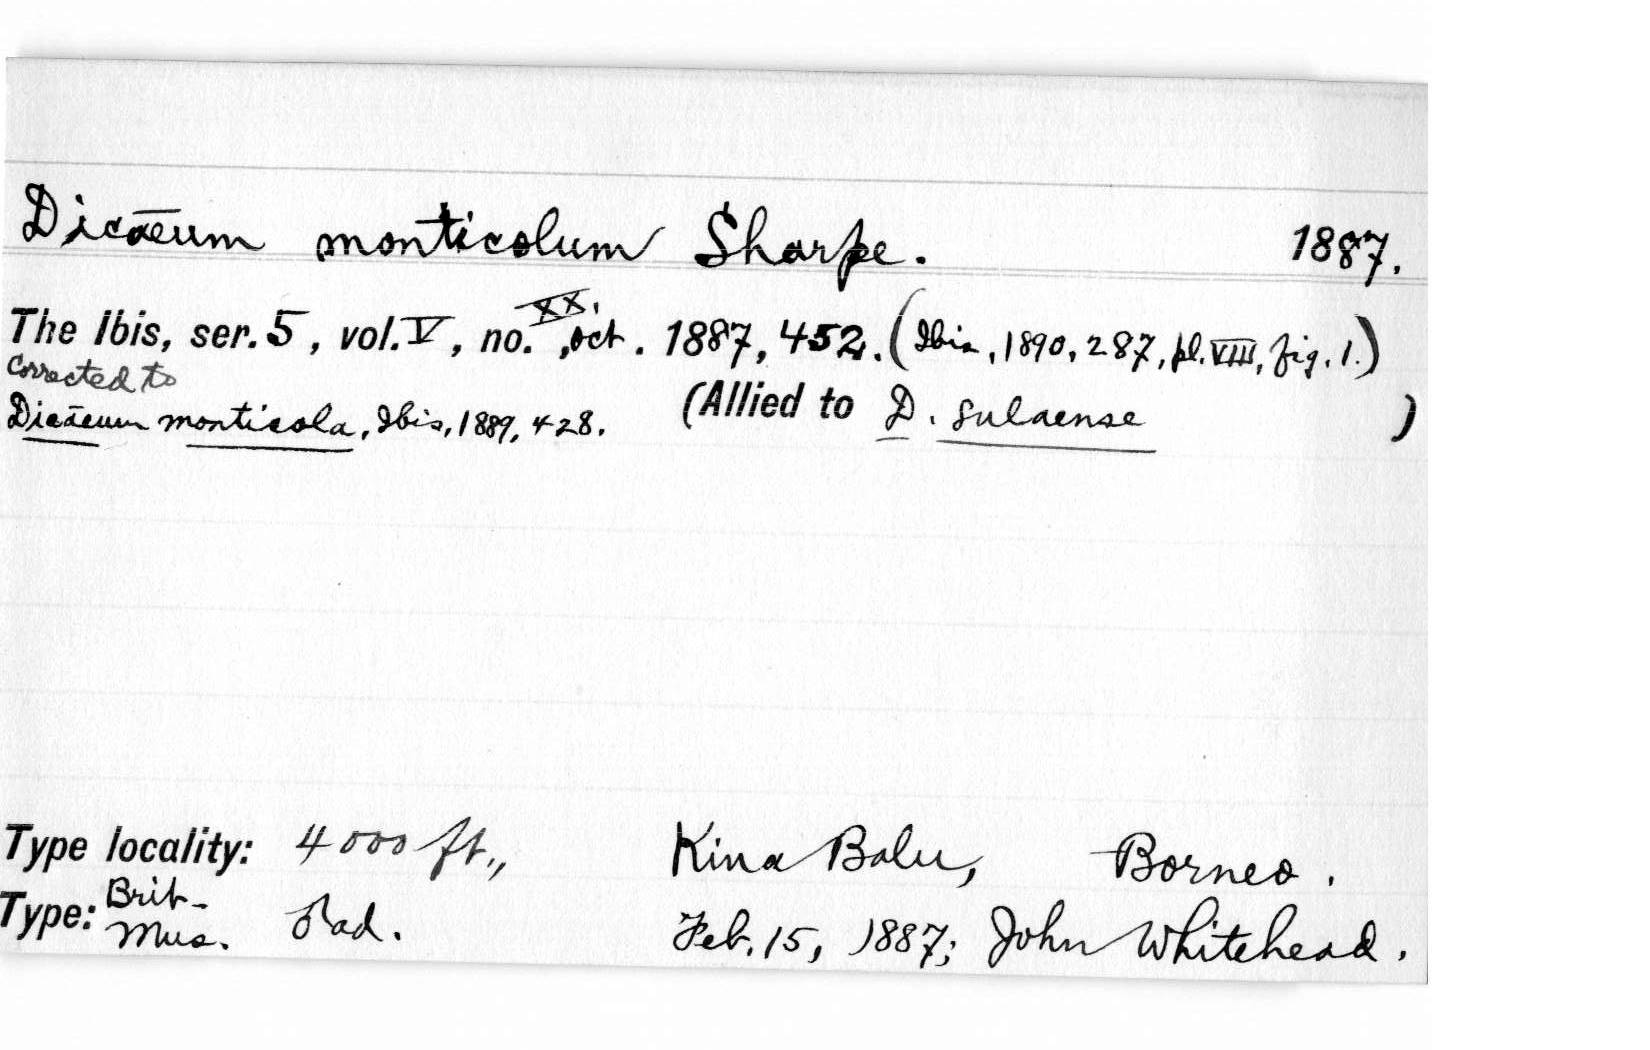 Dicaeum monticolum Sharpe. 1887.
The Ibis, ser. 5, vol. V, no. XX., Oct. 1887, 452. (Ibis, 1890, 287, pl. VIII, fig. 1.)
Corrected to
Dicaeum monticola, Ibis, 1889, 428. (Allied to D. sulaense )
Type locality: 4000 ft., Kina Balu, Borneo.
Type: Brit. Mus. ad. Feb. 15, 1887; John Whitehead.